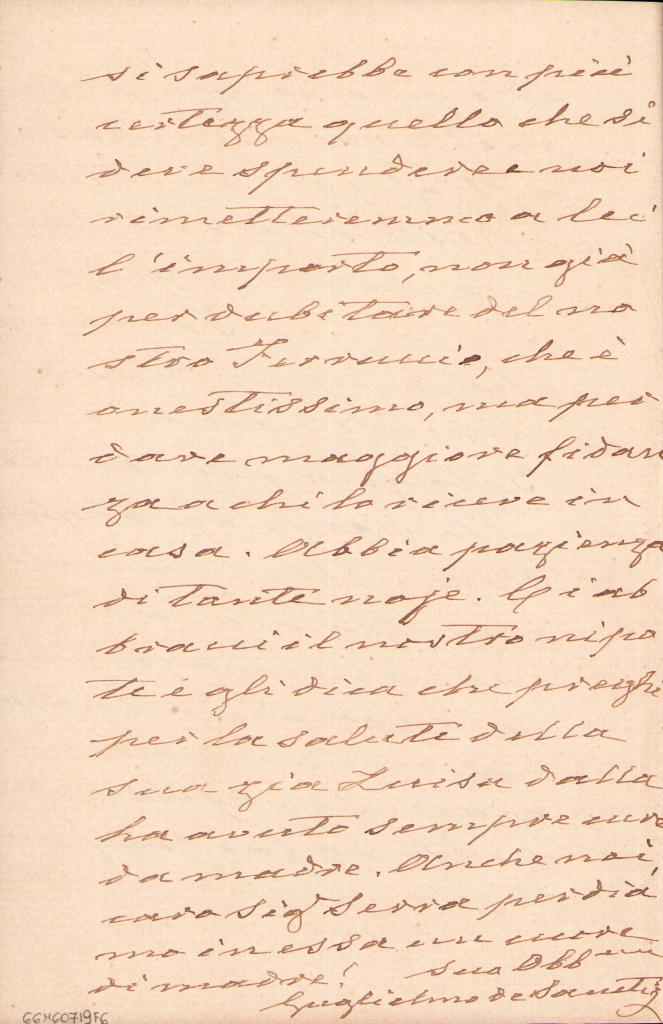 si saprebbe con più
certezza quello che si
deve spendere e noi
rimetteremmo a lei
l'importo, non già
per dubitare del no
stro Ferruccio, che è
onestissimo, ma per
dare maggiore fidan
za a chi lo riceve in
casa. Abbia pazienza
di tante noje. Ci ab
bracci il nostro nipo
te e gli dica che preghi
per la salute della
sua zia Luisa dalla
ha avuto sempre cure
da madre. Anche noi,
caro Sigr Serra perdia
mo in essa un cuore
di madre!
Suo Obbmo
Guglielmo de Sanctis
66M60719F6